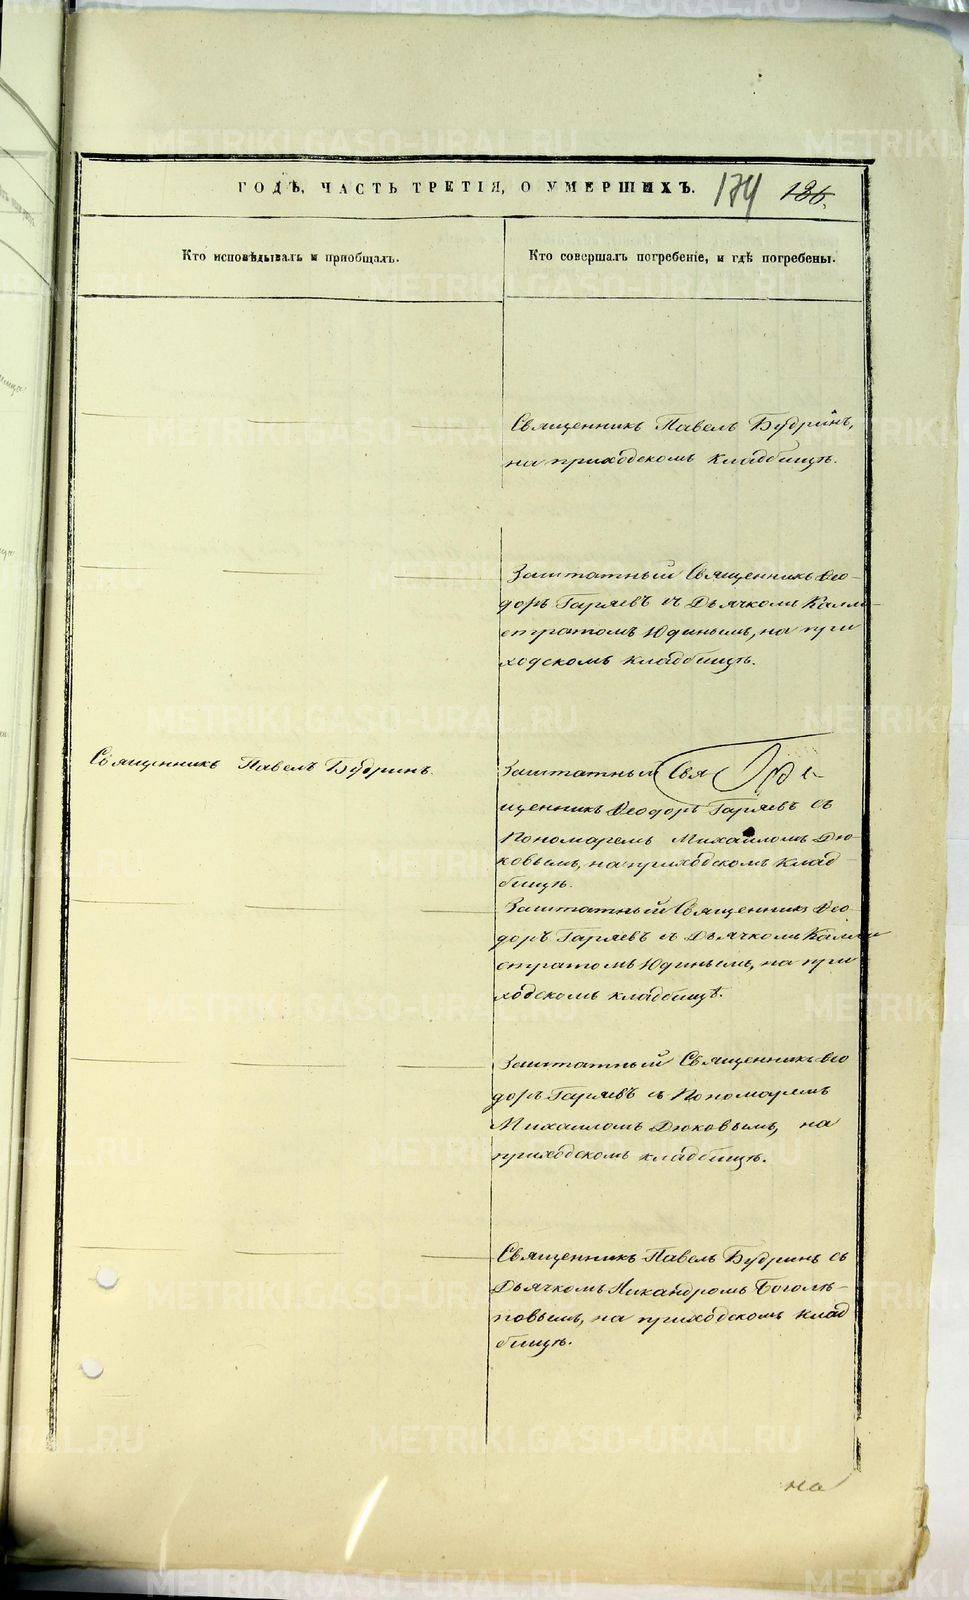 ГОДѢ, ЧАСТЬ ТРЕТІЯ, О УМЕРШИХЪ. 174 186.
Кто исповѣдывалъ и пріобщалъ.
Кто совершалъ погребеніе, и гдѣ погребены.
Священникъ Павелъ Будринъ,
на приходскомъ кладбищѣ.
Заштатный Священникъ Ѳео-
доръ Гаряевъ съ Дьячкомъ Калли-
стратомъ Юдинымъ, на при
ходскомъ кладбищѣ.
Священникъ Павелъ Будринъ.
Заштатный Свя
щенникъ Ѳеодоръ Гаряевъ съ
Пономаремъ Михаиломъ Дю-
ковымъ, на приходскомъ клад-
бищѣ.
Заштатный Священникъ Ѳео-
доръ Гаряевъ съ Дьячкомъ Калли
стратомъ Юдинымъ, на при
ходскомъ кладбищѣ.
Заштатный Священникъ Ѳео
доръ Гаряевъ съ Пономаремъ
Михаиломъ Дюковымъ, на
приходскомъ кладбищѣ.
Священникъ Павелъ Будринъ съ
Дьячкомъ Никандромъ Боголѣ-
повымъ, на приходскомъ клад
бищѣ.
на
METRIKI.GASO-URAL.RU